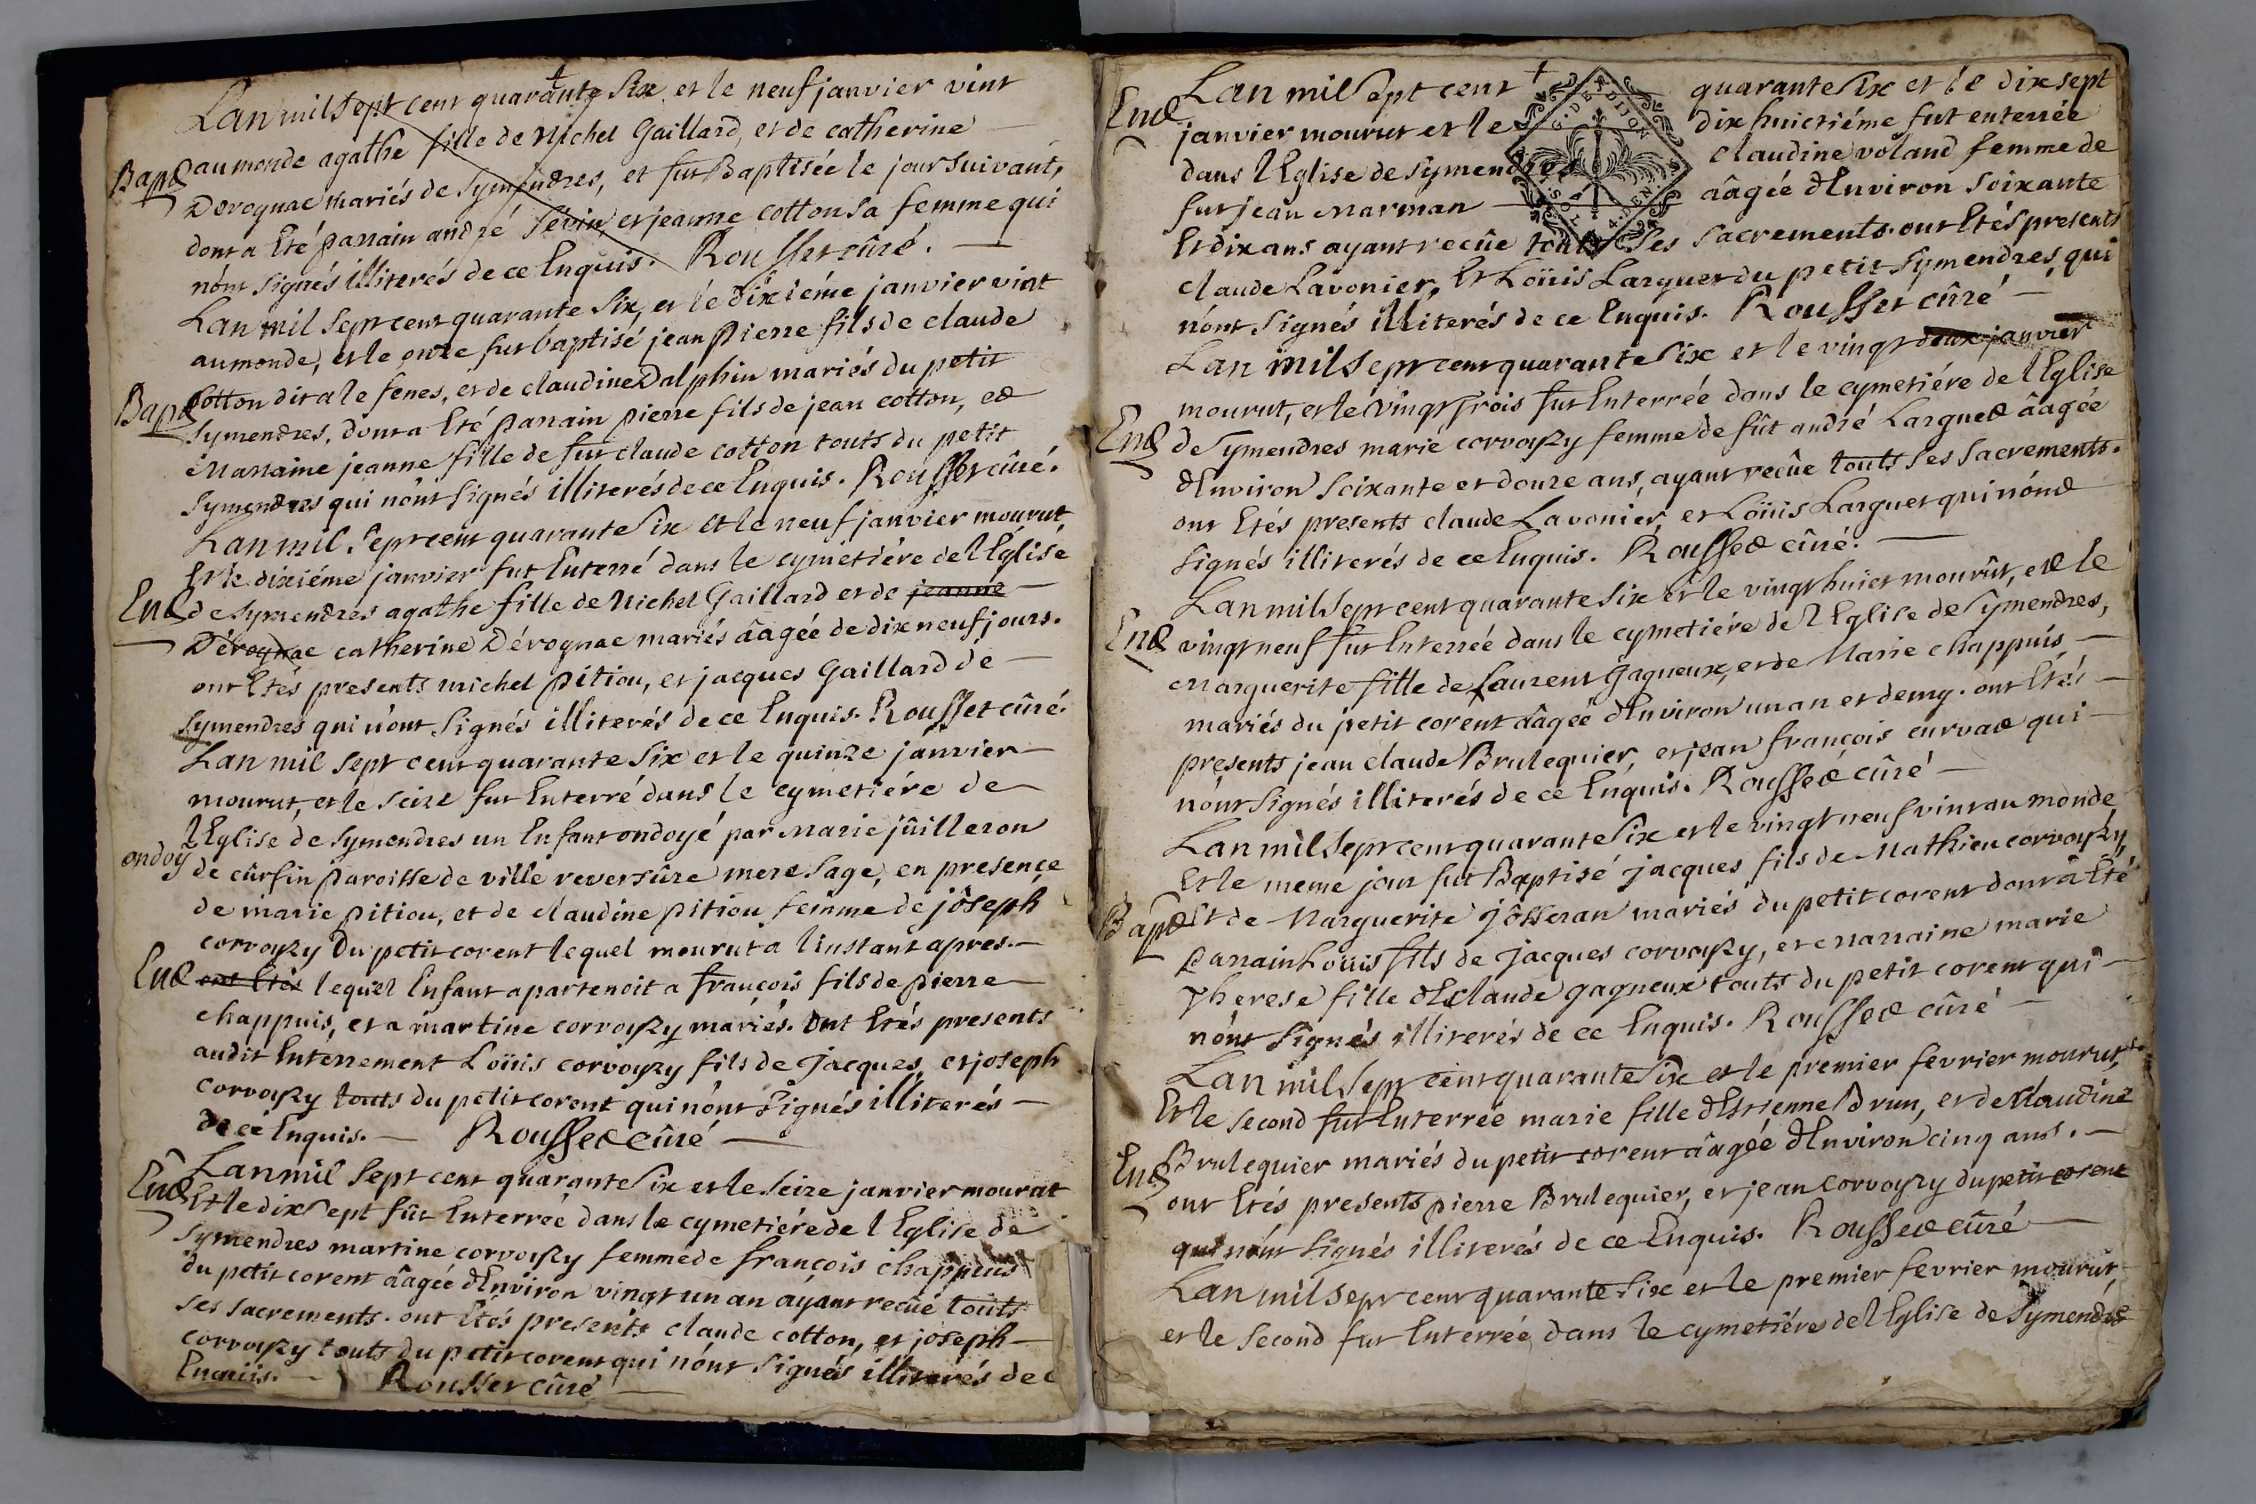 Lan mil sept cent quarante six et le neuf janvier vint
Bapt au monde agathe fille de Michel Gaillard, et de catherine
Derognac mariés de Symendres, et fut Baptisée le jour suivant,
dont a Eté parrain andré Sevin, et jeanne cotton sa femme qui
nónt signés illiterés de ce Enquis. Rousset cûré.
Lan mil sept cent quarante six, et le dixiéme janvier vint
au monde, et le onze fut baptisé jean pierre fils de claude
Bapt Cotton dit a le fenes, et de claudine Dalphin mariés du petit
Symendres, dont a Eté parrain pierre fils de jean cotton, et
Marraine jeanne fille de fut claude cotton touts du petit
Symendres qui nónt signés illiterés de ce Enquis. Rousset cûré.
Lan mil sept cent quarante six et le neuf janvier mourut,
Et le dixiéme janvier fut Enterré dans le cymetiére de l Eglise
Ent de Symendres agathe fille de Michel Gaillard et de jeanne
Dérognac catherine Dérognac mariés âagée de dix neuf jours.
ont Etés presents michel pitiou, et jacques Gaillard de
Symendres qui nónt signés illiterés de ce Enquis. Rousset cûré.
Lan mil sept cent quarante six et le quinze janvier
mourut, et le seize fut Enterré dans le cymetiére de
l Eglise de Symendres un Enfant ondoyé par Marie jûilleron
ondoy de cûrfin paroisse de ville reversûre mere sage, en presence
de marie pitiou, et de claudine pitiou femme de jôseph
corvoyzy du petit corent lequel mourut a linstant apres.
Ent ont Etés lequel Enfant apartenoit a françois fils de pierre
chappuis, et a martine corvoyzy mariés. Ont Etés presents
audit Enterrement Loüis corvoyzy fils de Jacques, et joseph
corvoyzy touts du petit corent qui nónt signés illiterés
de ce Enquis. Rousset cûré
Ent Lan mil sept cent quarante six et le seize janvier mourut
Et le dix sept fût Enterrée dans le cymetiére de l Eglise de
Symendres martine corvoyzy femme de françois chappuis
du petit corent âagée dEnviron vingt un an ayant recûe touts
ses sacrements. ont Etés presents claude cotton, et joseph
corvoyzy touts du petit corent qui nónt signés illiterés de c
Enquis. Rousset cûré
Ent Lan mil sept cent quarante six et le dix sept
janvier mourut et le dix huictiéme fut enterrée
dans l Eglise de Symendres claudine voland femme de
fut jean Marman âagée dEnviron soixante
Et dix ans ayant recûe touts ses sacrements. ont Etés presents
claude Lavonier, Et Loüis Larguet du petit Symendres, qui
nónt signés illiterés de ce Enquis. Rousset cûré
Lan mil sept cent quarante six et le vingt deux janvier
mourut, et le vingt trois fut Enterrée dans le cymetiére de l Eglise
Ent de Symendres marie corvoyzy femme de fût andré Larguet âagée
dEnviron soixante et douze ans, ayant recûe touts ses sacrements.
ont Etés presents claude Lavonier, et Loüis Larguet qui nónt
signés illiterés de ce Enquis. Rousset cûré.
Lan mil sept cent quarante six et le vingt huict mourût, et le
Ent vingt neuf fut Enterrée dans le cymetiére de l Eglise de Symendres,
Marguerite fille de Laurent Gagneux, et de Marie chappuis,
mariés du petit corent âagée dEnviron un an et demy. ont Etés
presents jean claude Brulequier, et jean françois curvat qui
nónt signés illiterés de ce Enquis. Rousset cûré
Lan mil sept cent quarante six et le vingt neuf vint au monde
Et le meme jour fut Baptisé Jacques fils de Mathieu corvoyzy,
Bapt Et de Marguerite jôsseran mariés du petit corent dont â Eté
parrain Loüis fils de Jacques corvoyzy, et Marraine marie
Therese fille dE claude gagneux touts du petit corent qui
nónt signés illiterés de ce Enquis. Rousset cûré
Lan mil sept cent quarante six et le premier fevrier mourut,
Et le second fut Enterrée marie fille dEstienne Brun, et de claudine
Ent Brulequier mariés du petit corent âagée dEnviron cinq ans.
ont Etés presents pierre Brulequier, et jean corvoyzy du petit corent
qui nónt signés illiterés de ce Enquis. Rousset cûré
Lan mil sept cent quarante six et le premier fevrier mourut,
et le second fut Enterrée dans le cymetiére de l Eglise de Symendre